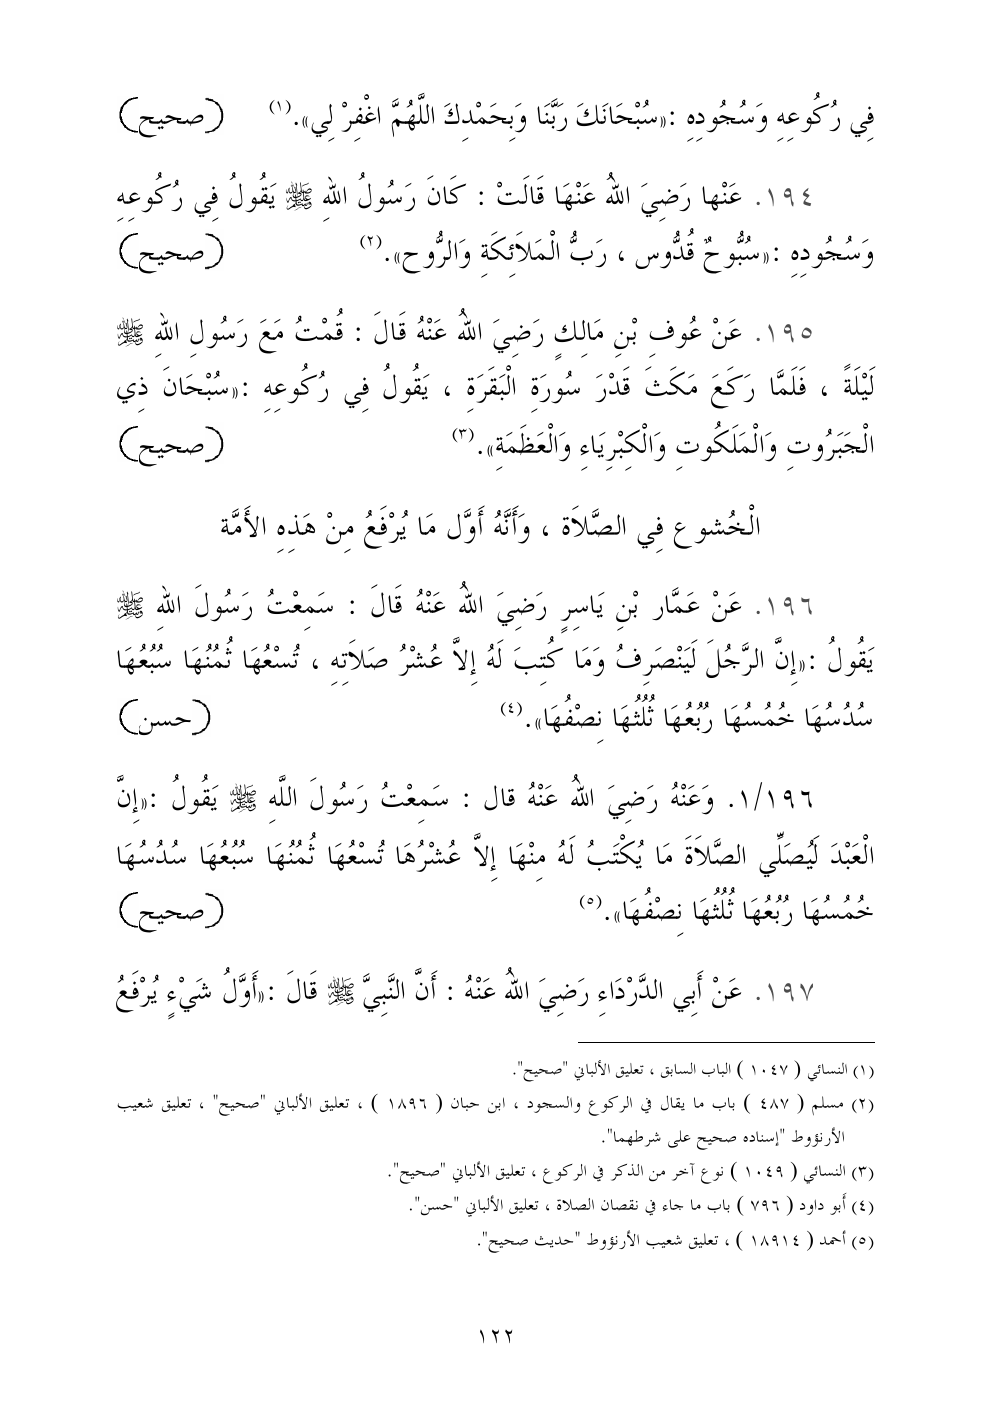 فِي رُكُوعِهِ وَسُجُودِهِ :«سُبْحَانَكَ رَبَّنَا وَبِحَمْدِكَ اللَّهُمَّ اغْفِرْ لِي».(١) (صحيح)
١٩٤. عَنْها رَضِيَ اللهُ عَنْهَا قَالَتْ : كَانَ رَسُولُ اللهِ ﷺ يَقُولُ فِي رُكُوعِهِ
وَسُجُودِهِ :«سُبُّوحٌ قُدُّوس ، رَبُّ الْمَلاَئِكَةِ وَالرُّوح».(٢) (صحيح)
١٩٥. عَنْ عُوفِ بْنِ مَالِكٍ رَضِيَ اللهُ عَنْهُ قَالَ : قُمْتُ مَعَ رَسُولِ اللهِ ﷺ
لَيْلَةً ، فَلَمَّا رَكَعَ مَكَثَ قَدْرَ سُورَةِ الْبَقَرَةِ ، يَقُولُ فِي رُكُوعِهِ :«سُبْحَانَ ذِي
الْجَبَرُوتِ وَالْمَلَكُوتِ وَالْكِبْرِيَاءِ وَالْعَظَمَةِ».(٣) (صحيح)
الْخُشوع فِي الصَّلاَة ، وَأَنَّهُ أَوَّل مَا يُرْفَعُ مِنْ هَذِهِ الأَمَّة
١٩٦. عَنْ عَمَّار بْنِ يَاسِرٍ رَضِيَ اللهُ عَنْهُ قَالَ : سَمِعْتُ رَسُولَ اللهِ ﷺ
يَقُولُ :«إِنَّ الرَّجُلَ لَيَنْصَرِفُ وَمَا كُتِبَ لَهُ إِلاَّ عُشْرُ صَلاَتِهِ ، تُسْعُهَا ثُمُنُهَا سُبُعُهَا
سُدُسُهَا خُمُسُهَا رُبُعُهَا ثُلُثُهَا نِصْفُهَا».(٤) (حسن)
١/١٩٦. وَعَنْهُ رَضِيَ اللهُ عَنْهُ قال : سَمِعْتُ رَسُولَ اللَّهِ ﷺ يَقُولُ :«إِنَّ
الْعَبْدَ لَيُصَلِّي الصَّلاَةَ مَا يُكْتَبُ لَهُ مِنْهَا إِلاَّ عُشْرُهَا تُسْعُهَا ثُمُنُهَا سُبُعُهَا سُدُسُهَا
خُمُسُهَا رُبُعُهَا ثُلُثُهَا نِصْفُهَا».(٥) (صحيح)
١٩٧. عَنْ أَبِي الدَّرْدَاءِ رَضِيَ اللهُ عَنْهُ : أَنَّ النَّبِيَّ ﷺ قَالَ :«أَوَّلُ شَيْءٍ يُرْفَعُ
(١) النسائي ( ١٠٤٧ ) الباب السابق ، تعليق الألباني "صحيح".
(٢) مسلم ( ٤٨٧ ) باب ما يقال في الركوع والسجود ، ابن حبان ( ١٨٩٦ ) ، تعليق الألباني "صحيح" ، تعليق شعيب
الأرنؤوط "إسناده صحيح على شرطهما".
(٣) النسائي ( ١٠٤٩ ) نوع آخر من الذكر في الركوع ، تعليق الألباني "صحيح".
(٤) أبو داود ( ٧٩٦ ) باب ما جاء في نقصان الصلاة ، تعليق الألباني "حسن".
(٥) أحمد ( ١٨٩١٤ ) ، تعليق شعيب الأرنؤوط "حديث صحيح".
١٢٢